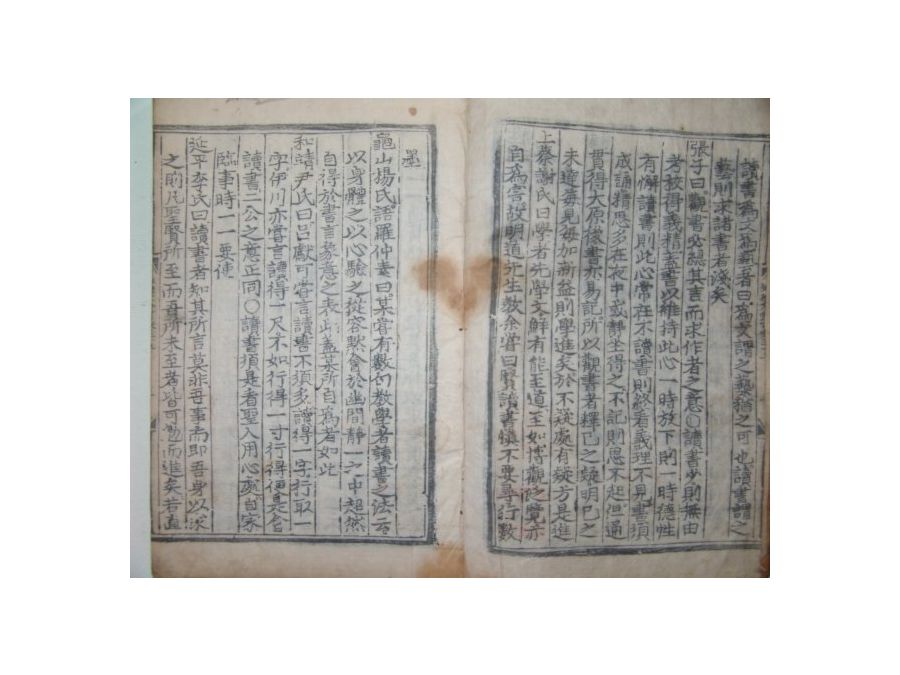 讀書爲文爲藝者曰爲文謂之藝猶之可也讀書謂之
藝則求諸書者淺矣
張子曰觀書必緫其言而求作者之意○讀書少則無由
考校得義精盖書以維持此心一時放下則一時德性
有懈讀書則此心常在不讀書則終看義理不見書須
成誦精思多在夜中或静坐得之不記則思不起但通
貫得大原後書亦易記所以觀書者釋己之疑明己之
未達每見每加新益則學進矣於不疑處有疑方是進
上蔡謝氏曰學者先學文鮮有能至道至如博觀泛覽亦
自爲害故明道先生教余嘗曰賢讀書愼不要尋行數
墨
龜山楊氏語羅仲素曰某嘗有數句教學者讀書之法云
以身體之以心驗之從容默會於幽間静一之中超然
自得於書言象意之表此盖某所自爲者如此
和靖尹氏曰呂獻可嘗言讀書不須多讀得一字行取一
字伊川亦嘗言讀得一尺不如行得一寸行得便是會
讀書二公之意正同○讀書須是看聖人用心處自家
臨事時一一要使
延平李氏曰讀書者知其所言莫非吾事而即吾身以求
之則凡聖賢所至而吾所未至者皆可勉而進矣若直